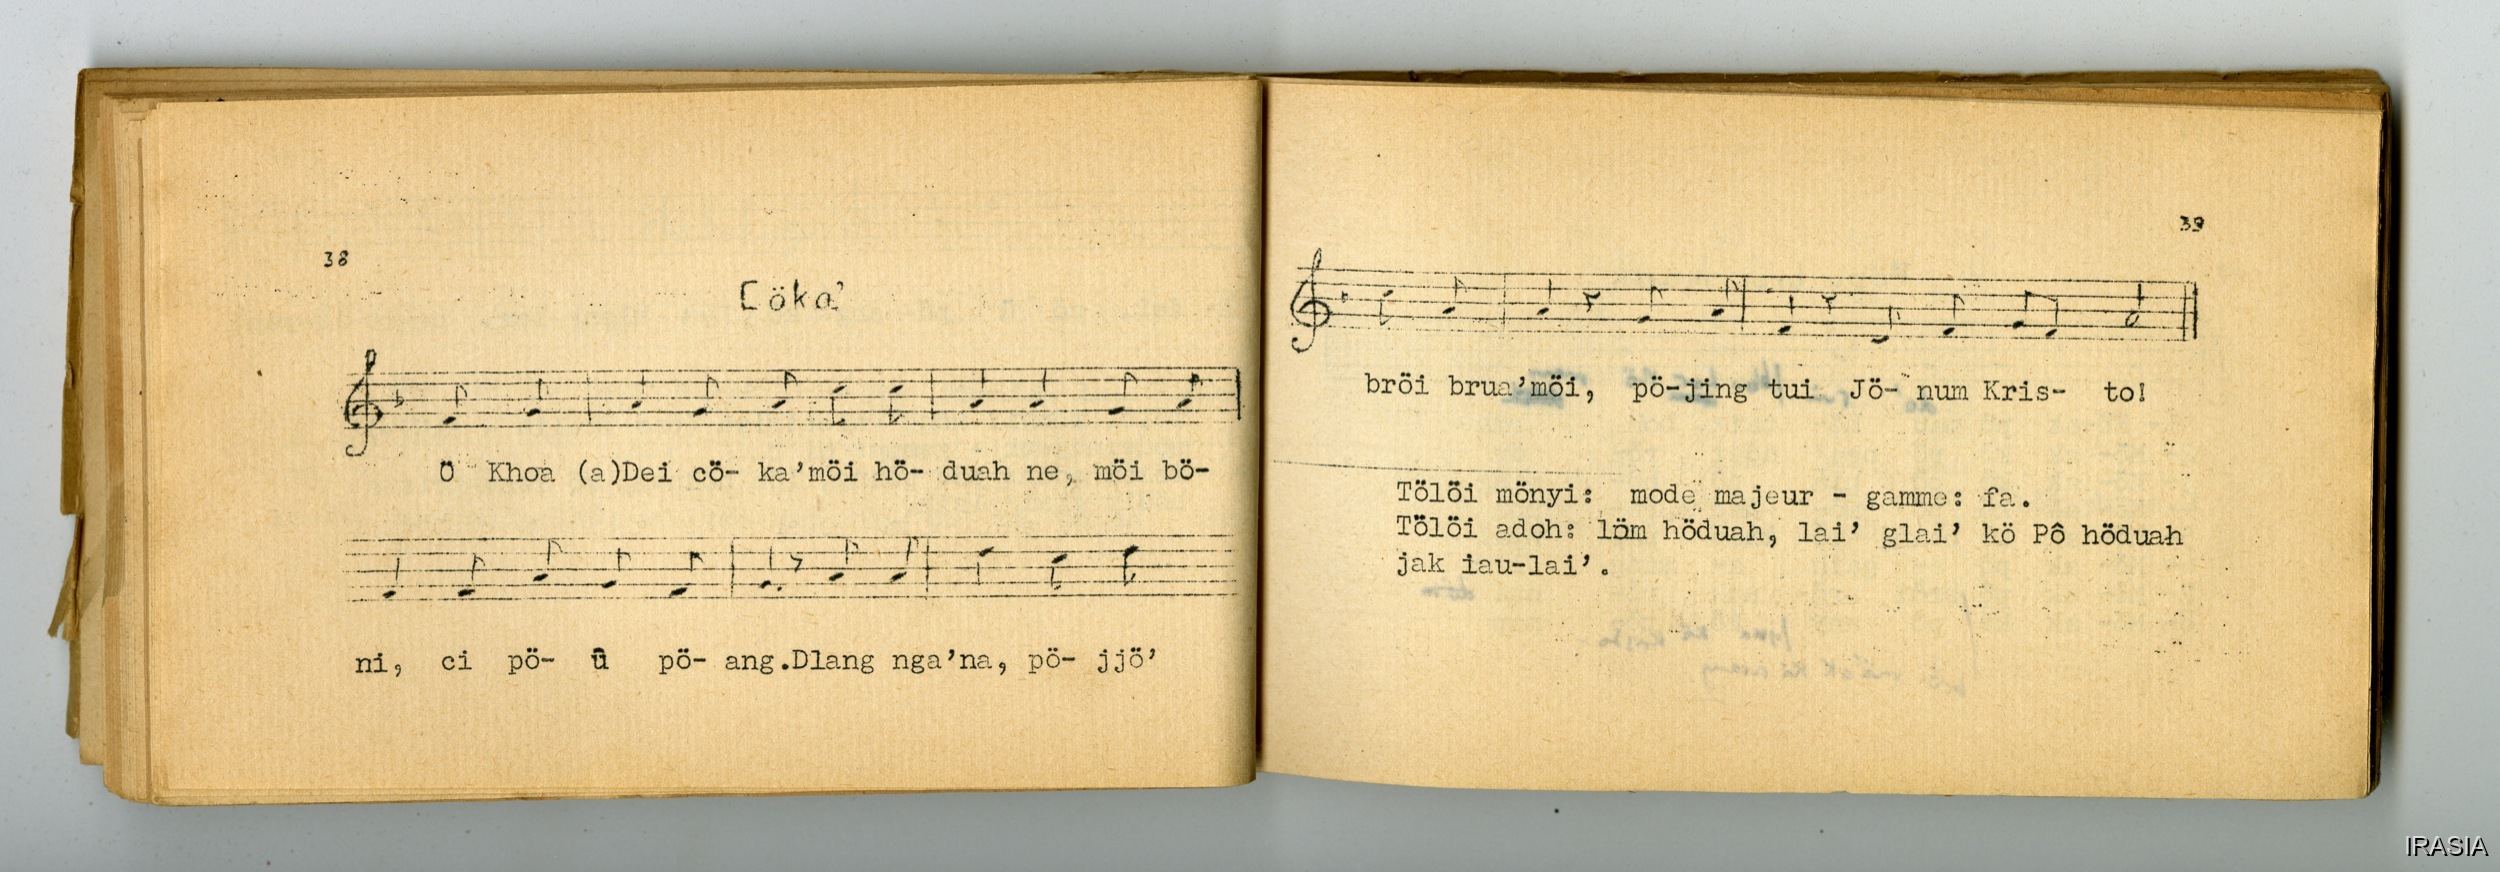 38
Cöka'
Ö Khoa (a)Dei cö- ka'möi hö- duah ne, möi bö-
ni, ci pö- û pö- ang.Dlang nga'na, pö- jjö'
39
bröi brua'möi, pö-jing tui Jö- num Kris- to!
Tölöi mönyi: mode majeur - gamme: fa.
Tölöi adoh: löm höduah, lai' glai' kö Pô höduah
jak iau-lai'.
IRASIA